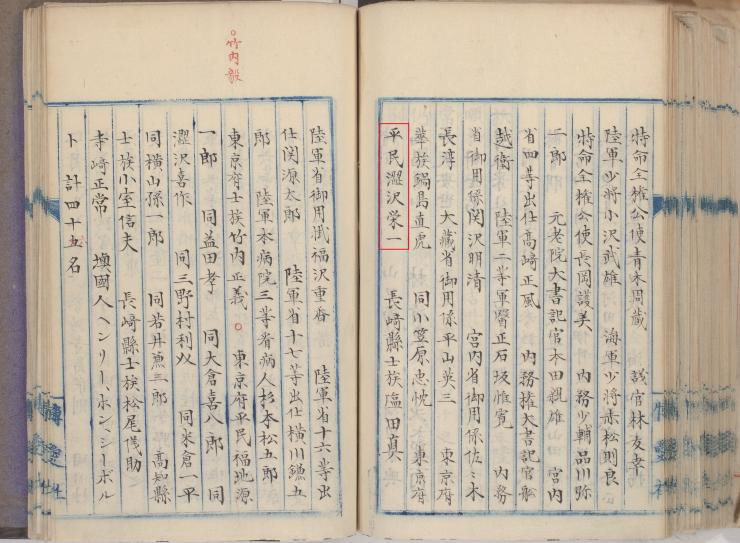 特命全権公使青木周蔵 議官林友幸
陸軍少将小沢武雄 海軍少将赤松則良
特命全権公使長岡護美 内務少輔品川弥
二郎 元老院大書記官本田親雄 宮内
省四等出仕高崎正風 内務権大書記官舩
越衛 陸軍二等軍醫正石坂惟寛 内務
省御用係関沢明清 宮内省御用係佐々木
長淳 大蔵省御用係平山英三 東京府
華族鍋島直虎 同小笠原忠忱 東京府
平民澁沢栄一 長崎縣士族塩田真
博愛社
陸軍省御用掛福沢重香 陸軍省十六等出
仕関源太郎 陸軍省十七等出仕横川鐮五
郎 陸軍本病院三等看病人杉本松五郎
○竹内毅
東京府士族竹内正義 ○ 東京府平民福地源
一郎 同益田孝 同大倉喜八郎 同
澀沢喜作 同三野村利助 同米倉一平
同横山孫一郎 同若井兼三郎 高知縣
士族小室信夫 長崎縣士族松尾儀助
寺崎正常 墺國人ヘンリー、ホン、シーボル
ト 計四十五名
博愛社